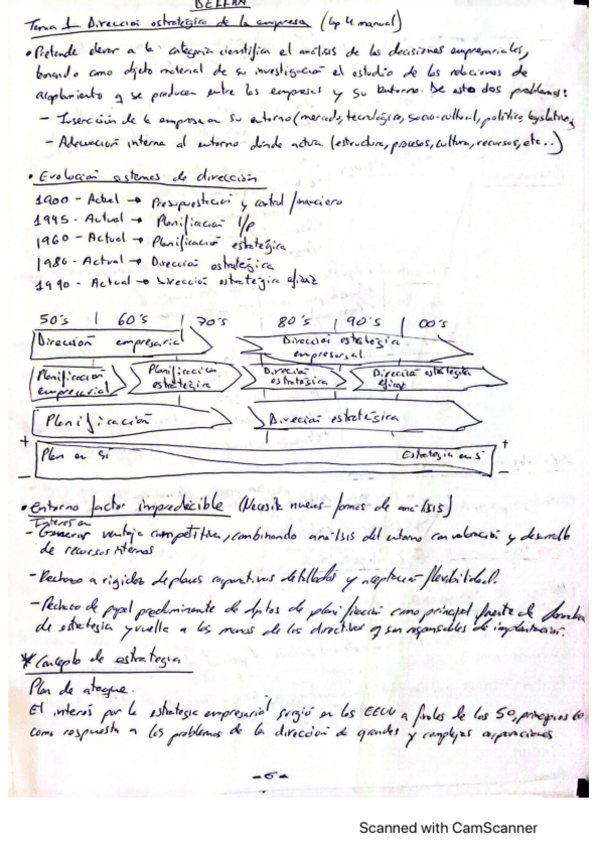 Tema 1 Dirección estratégica de la empresa (Cap 4 manual)
• Pretende elevar a la categoría científica el análisis de las decisiones empresariales,
tomando como objeto material de su investigación el estudio de las relaciones de
acoplamiento q se producen entre las empresas y su entorno. De esto dos problemas:
– Inserción de la empresa en su entorno (mercado, tecnológico, socio-cultural, político, legislativo,
– Adecuación interna al entorno donde actua (estructura, procesos, cultura, recursos, etc..)
• Evolución sistemas de dirección
1900 - Actual → Presupuestación y control financiero
1945 - Actual → Planificación l/p
1960 - Actual → Planificación estratégica
1980 - Actual → Dirección estratégica
1990 - Actual → Dirección estratégica eficaz
50's | 60's | 70's 80's | 90's | 00's
Dirección empresarial Dirección estratégica empresarial
Planificación empresarial Planificación estratégica Dirección estratégica Dirección estratégica eficaz
Planificación Dirección estratégica
+ +
Plan en sí Estrategia en sí
– –
• Entorno factor impredecible (Necesita nuevas formas de análisis)
Interés en
– Generar ventaja competitiva, combinando análisis del entorno con valoración y desarrollo
de recursos internos
– Rechazo a rigidez de planes corporativos detallados y aceptación flexibilidad.
– Rechazo de papel predominante de dptos de planificación como principal fuente de
de estrategia y vuelta a las manos de los directivos q son responsables de implantación.
* Concepto de estrategia
Plan de ataque.
El interés por la estrategia empresarial surgió en los EEUU a finales de los 50, principios 60
como respuesta a los problemas de la dirección de grandes y complejas corporaciones
Scanned with CamScanner